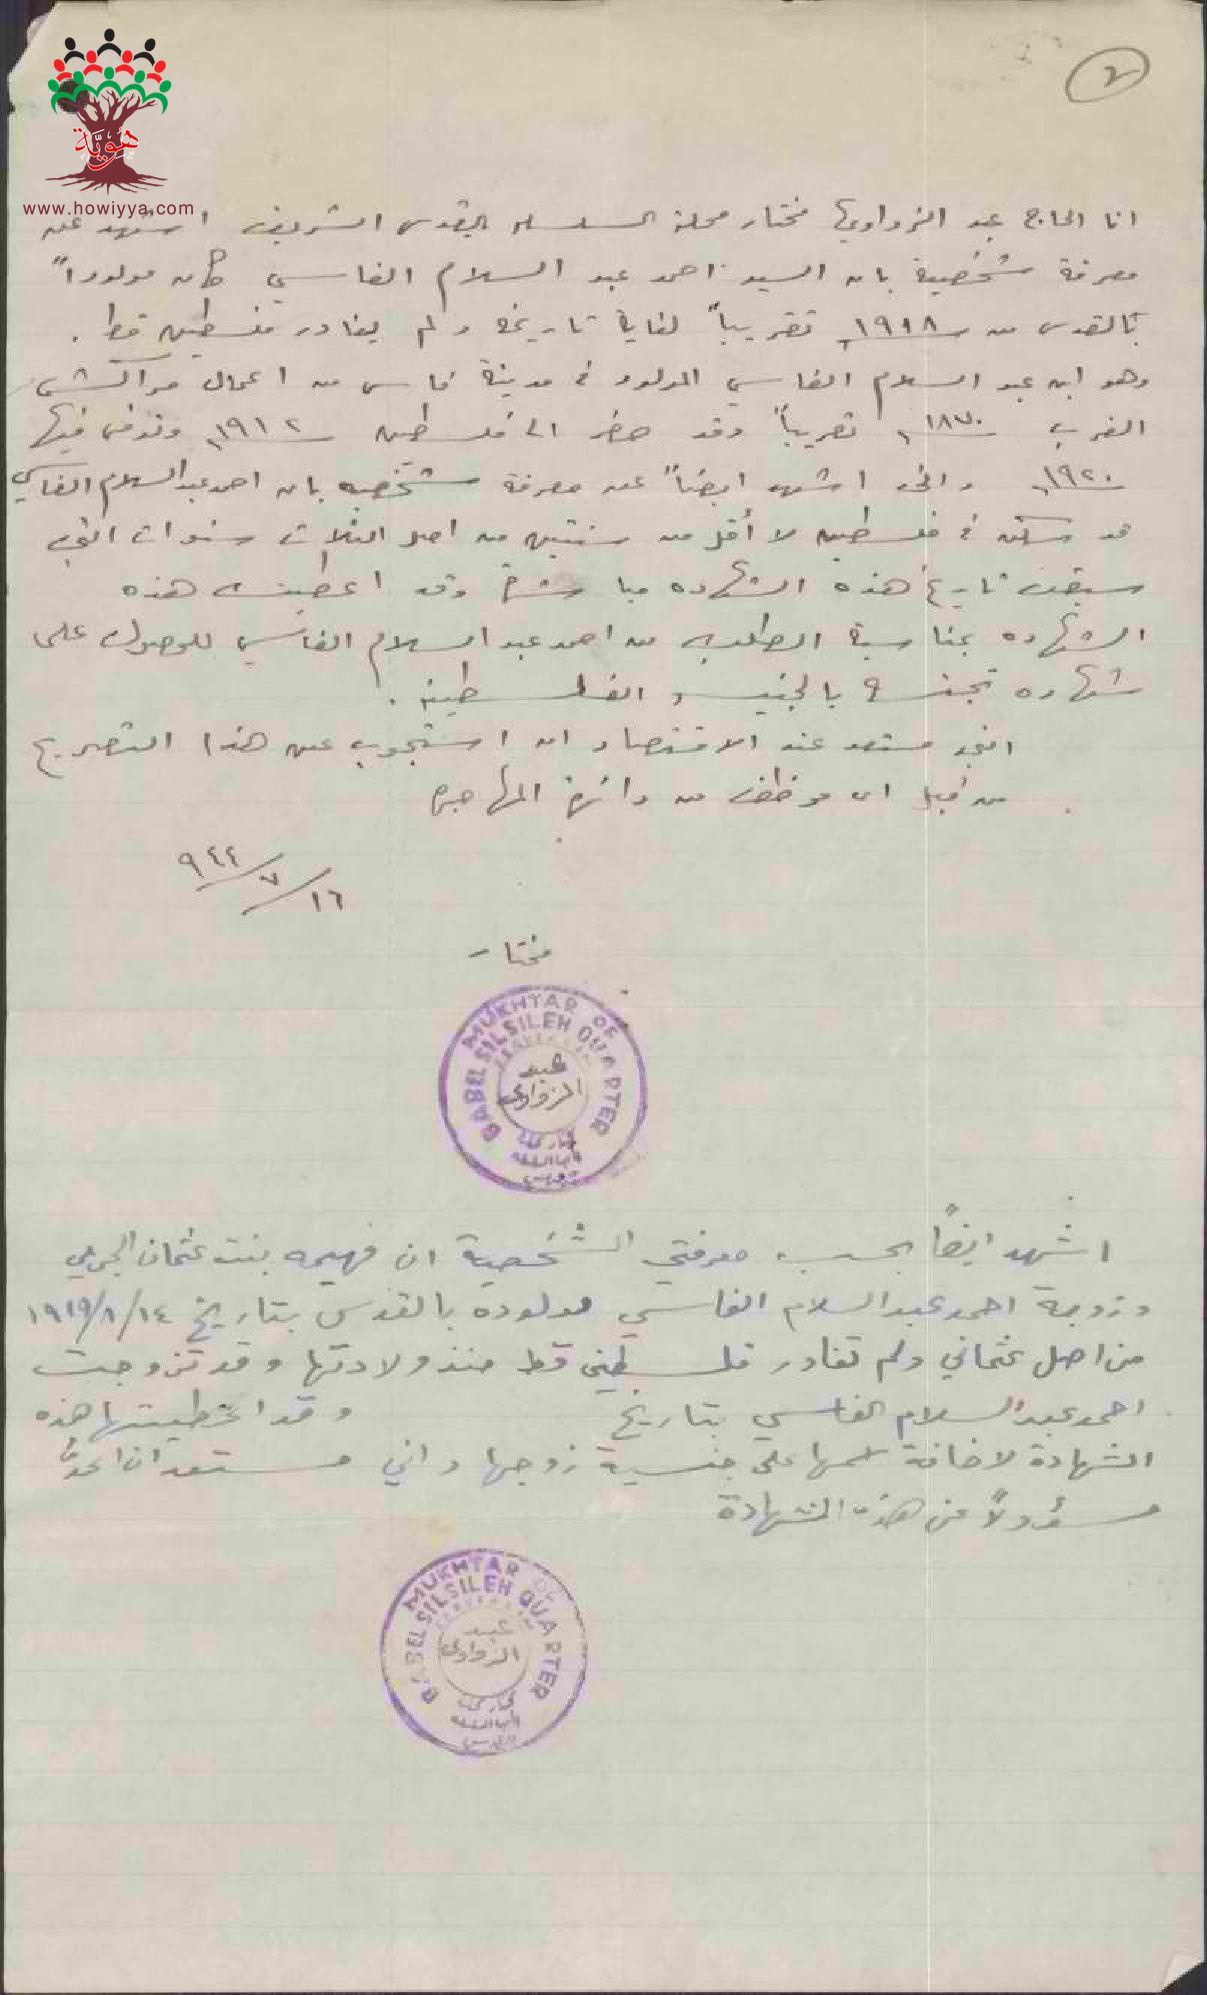 ٢
هوية
www.howiyya.com
انا الحاج عبد الزواوي مختار محلة السلسله بالقدس الشريف اشهد عن
معرفة شخصية بان السيد احمد عبد السلام الفاسي كان مولوداً
بالقدس من سنة ١٩١٨ تقريباً لغاية تاريخه ولم يغادر فلسطين قط .
وهو ابن عبد السلام الفاسي المولود في مدينة فاس من اعمال مراكش
الغرب سنة ١٨٧٠ تقريباً وقد حضر الى فلسطين سنة ١٩١٢ وتوفى فيها
سنة ١٩٢٠ واني اشهد ايضاً عن معرفة شخصيه بان احمد عبد السلام الفاسي
قد سكن في فلسطين لا أقل من سنتين من اصل الثلاث سنوات التي
سبقت تاريخ هذه الشهاده مباشرة وقد اعطيت هذه
الشهاده بمناسبة الطلب من احمد عبد السلام الفاسي للحصول على
شهاده تجنسه بالجنسية الفلسطينيه .
انني مستعد عند الاقتضاء ان استجوب عن هذا التصريح
من قبل اي موظف من دائرة المهاجره
١٦/٧/٩٤٤
مختار
MUKHTAR OF
BABEL SILSILEH QUARTER
JERUSALEM
عبد
الزواوي
مختار محلة
باب السلسله
القدس
اشهد ايضاً بحسب معرفتي الشخصية ان فهيمه بنت عثمان
وزوجة احمد عبد السلام الفاسي مولوده بالقدس بتاريخ ١٤/٨/١٩١٩
من اصل عثماني ولم تغادر فلسطين قط منذ ولادتها وقد تزوجت
احمد عبد السلام الفاسي بتاريخ وقد اعطيتها هذه
الشهادة لاضافة اسمها على جنسية زوجها واني مستعد ان اكون
مسؤولاً عن هذه الشهادة
MUKHTAR OF
BABEL SILSILEH QUARTER
JERUSALEM
عبد
الزواوي
مختار محلة
باب السلسله
القدس